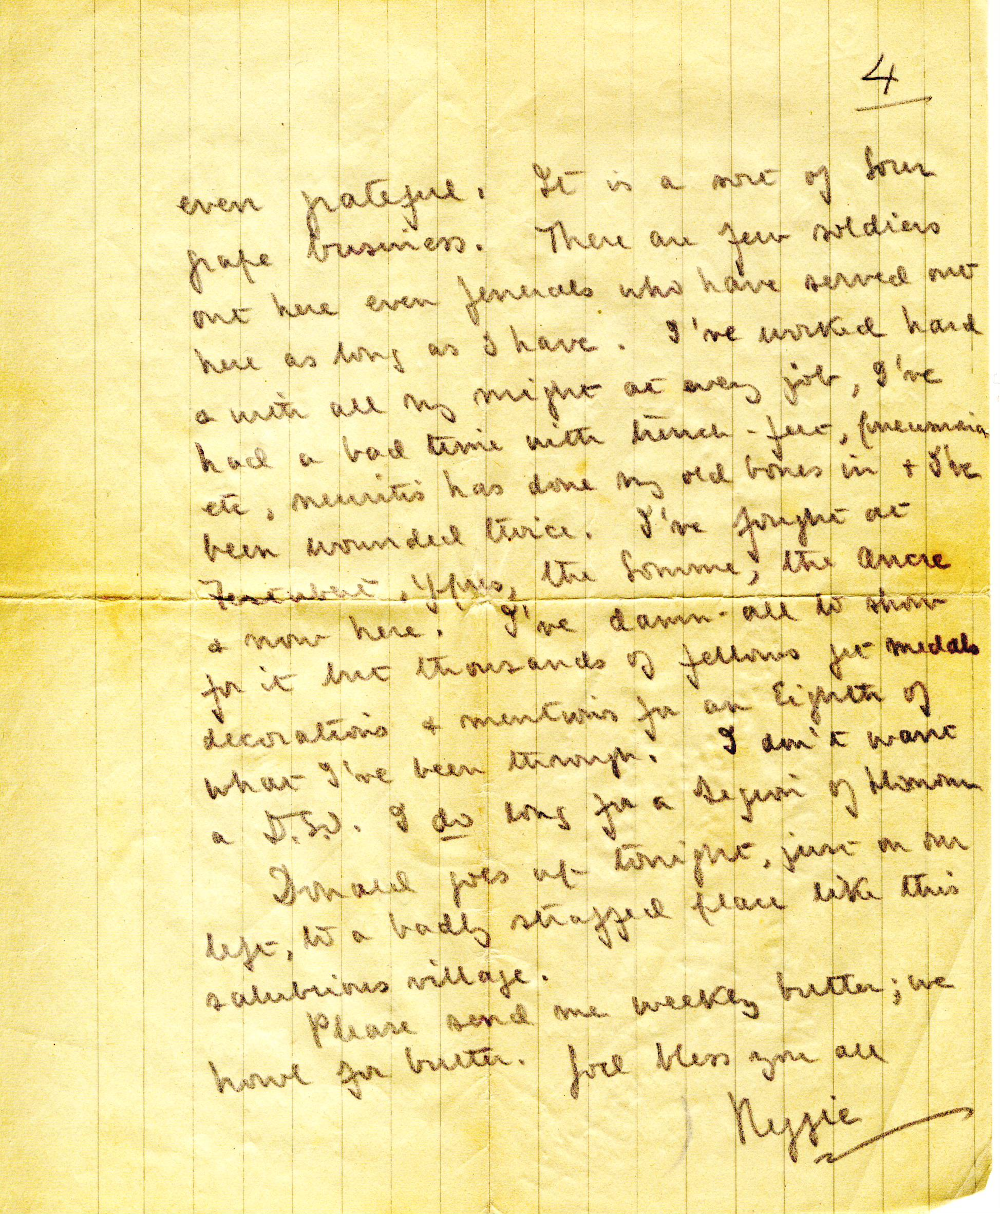 4
even grateful. It is a sort of sour
grape business. There are few soldiers
out here even generals who have served out
here as long as I have. I've worked hard
& with all my might at every job, I've
had a bad time with trench-feet, pneumonia
etc, neuritis has done my old bones in & I've
been wounded twice. I've fought at
Festubert, Ypres, the Somme, the Ancre
& now here. I've damn-all to show
for it but thousands of fellows get medals
decorations & mentions for an Eighth of
what I've been through. I don't want
a D.S.O. I do long for a Legion of Honour
Donald goes up tonight, just on our
left, to a badly straffed place like this
salubrious village.
Please send me weekly butter; we
howl for butter. God bless you all
Reggie